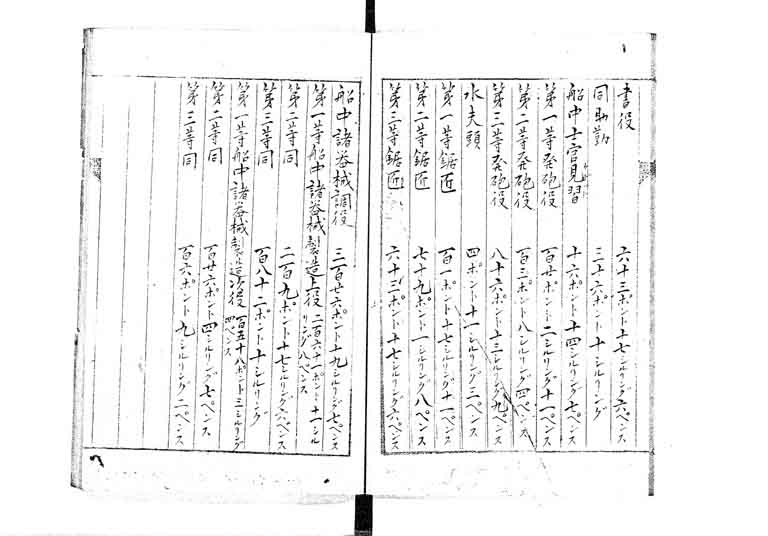 書役 六十三ポント十七シルリング六ペンス
同助勤 三十六ポント十シルリング
船中士官見習 十六ポント十四シルリング七ペンス
第一等発砲役 百廿ポント二シルリング十一ペンス
第二等発砲役 百三ポント八シルリング四ペンス
第三等発砲役 八十六ポント十三シルリング九ペンス
水夫頭 四ポント十一シルリング三ペンス
第一等鋸匠 百一ポント十七シルリング十一ペンス
第二等鋸匠 七十九ポント一シルリング八ペンス
第三等鋸匠 六十三ポント十七シルリング六ペンス
船中諸器械調役 三百廿六ポント十九シルリング七ペンス
第一等船中諸器械製造上役 二百六十一ポント十一シル
リング八ペンス
第二等同 二百九ポント十七シルリング六ペンス
第三等同 百八十二ポント十シルリング
第一等船中諸器械製造次役 百五十八ポント三シルリング
四ペンス
第二等同 百廿六ポント四シルリング七ペンス
第三等同 百六ポント九シルリング二ペンス